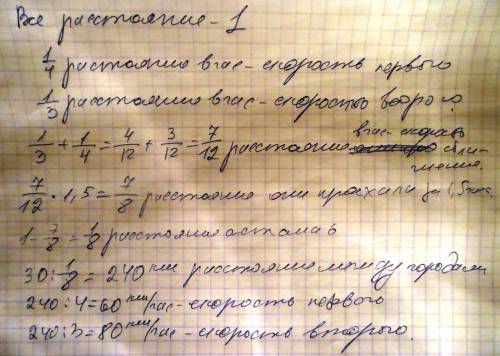 Все расстояние - 1
1/4 растояние в час - скорость первого
1/3 расстояние в час - скоростью второго.
1/3 + 1/4 = 4/12 + 3/12 = 7/12 расстояние в час - скорость сближение.
7/12 · 1,5 = 7/8 расстояние они проехали за 1,5 часа.
1 - 7/8 = 1/8 расстояние осталось
30 : 1/8 = 240 км расстояние между городами
240 : 4 = 60 км/час - скорость первого
240 : 3 = 80 км/час - скорость второго.